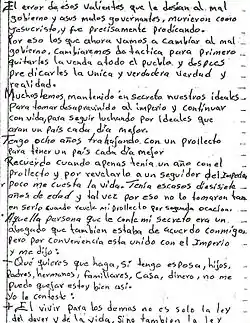 El error de esos valientes que le desían al mal
gobierno y asus malos governantes, murieron como
Jesucristo, y fue precisamente predicando.
Por eso los que ahora vamos a cambiar al mal
gobierno, cambiaremos de tactica para primero
quitarles la venda atodo el pueblo y despues
predicarles la Unica y verdadera verdad y
realidad.
Muchos hemos mantenido en secreto nuestros ideales
Para tomar desaprevenido al imperio y continuar
con vida, para seguir luchando por Ideales que
aran un país cada día mejor.
Tengo ocho años trabajando con un prollecto
para tener un país cada día mejor
Recuerdo cuando apenas tenía un año con el
prollecto y por revelarlo a un seguidor del Imperio
poco me cuesta la vida. Tenía escasos diesisiete
años de edad y tal vez por eso no lo tomaron tan
en serio cuando revelé mi prollecto por segunda ocacion.
Aquella persona que le conte mi secreto era un
abogado que tambien estaba de acuerdo conmigo
pero por conveniencia esta unido con el Imperio
y me dijo:
— Qui quieres que haga, si tengo esposa, hijos,
Padres, hermanos, familiares, Casa, dinero, no me
puedo quejar estoy bien asi-
Yo le conteste:
— El vivir para los demas no es solo la ley
del dever y de la vida, Sino tambien la ley